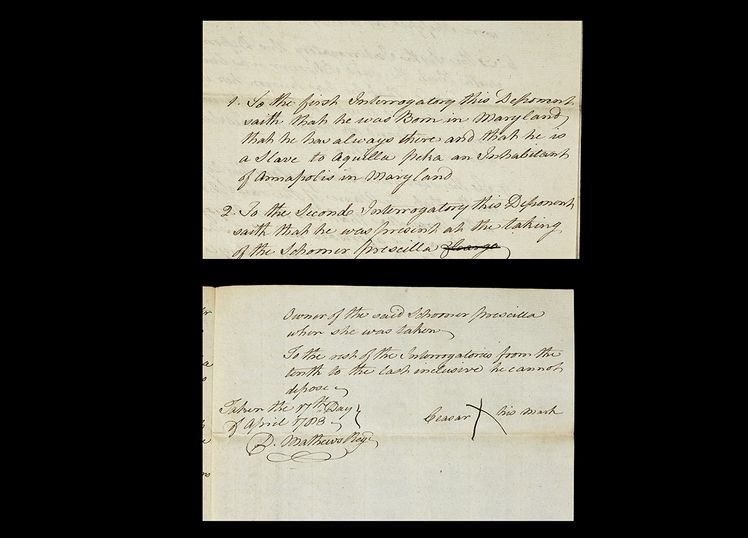 1. To the first Interrogatory this Deponent
saith that he was Born in Maryland
that he has always there and that he is
a Slave to Aquilla peka an Inhabitant
of Annapolis in Maryland
2. To the Second Interrogatory this Deponent
saith that he was present at the taking
of the Schooner Prescilla
Owner of the said Schooner Prescilla
when she was taken
To the rest of the Interrogatories from the
tenth to the last inclusive he cannot
depose
Taken the 17th Day
of April 1783
Ceasar X his mark
D. Mathews Regr